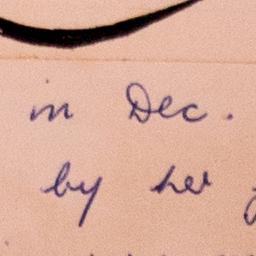 in Dec.
by her